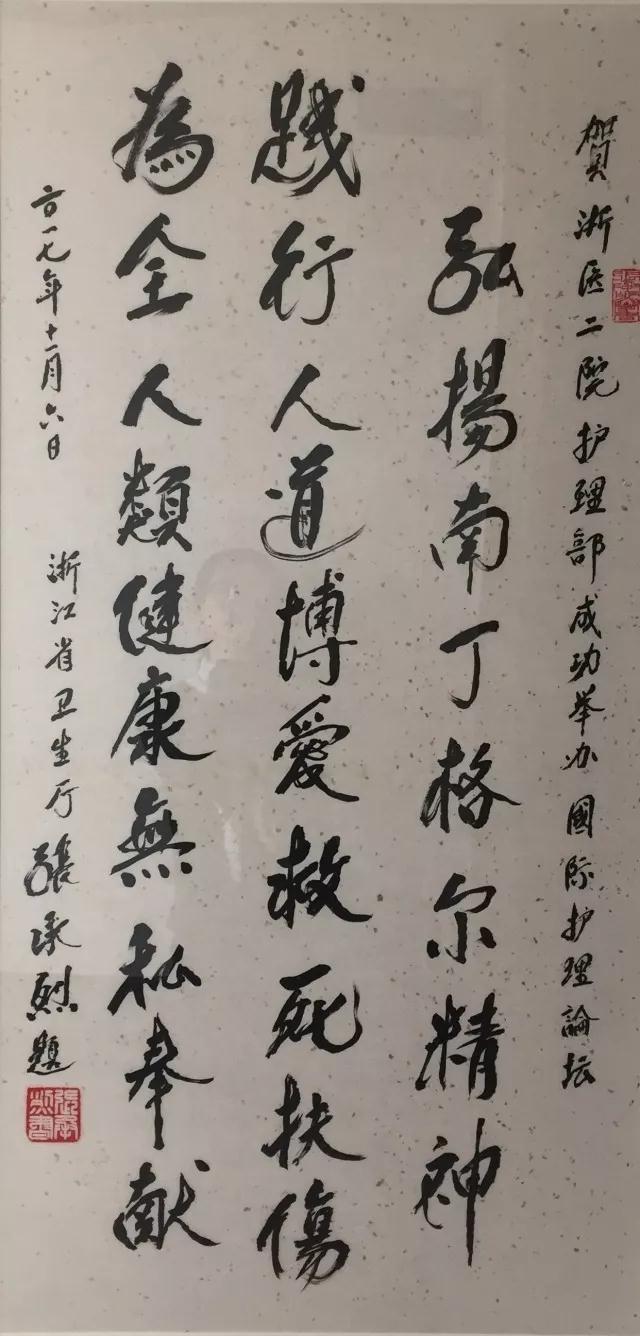 賀浙医二院护理部成功举办國际护理論坛
弘揚南丁格尔精神
践行人道博愛救死扶傷
為全人類健康無私奉献
二〇一九年十一月六日
浙江省卫生厅張承烈題